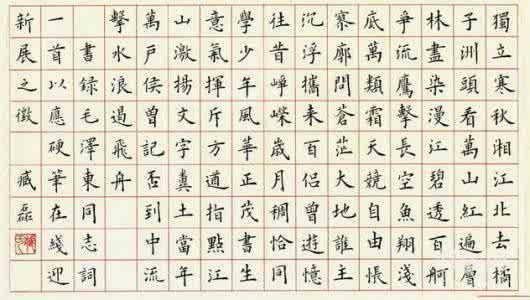 獨立寒秋湘江北去橘
子洲頭看萬山紅遍層
林盡染漫江碧透百舸
爭流鷹擊長空魚翔淺
底萬類霜天競自由悵
寥廓問蒼茫大地誰主
沉浮攜來百侶曾遊憶
往昔崢嶸歲月稠恰同
學少年風華正茂書生
意氣揮斥方遒指點江
山激揚文字糞土當年
萬戶侯曾記否到中流
擊水浪遏飛舟
書録毛澤東同志詞
一首以應硬筆在綫迎
新展之徵 臧磊